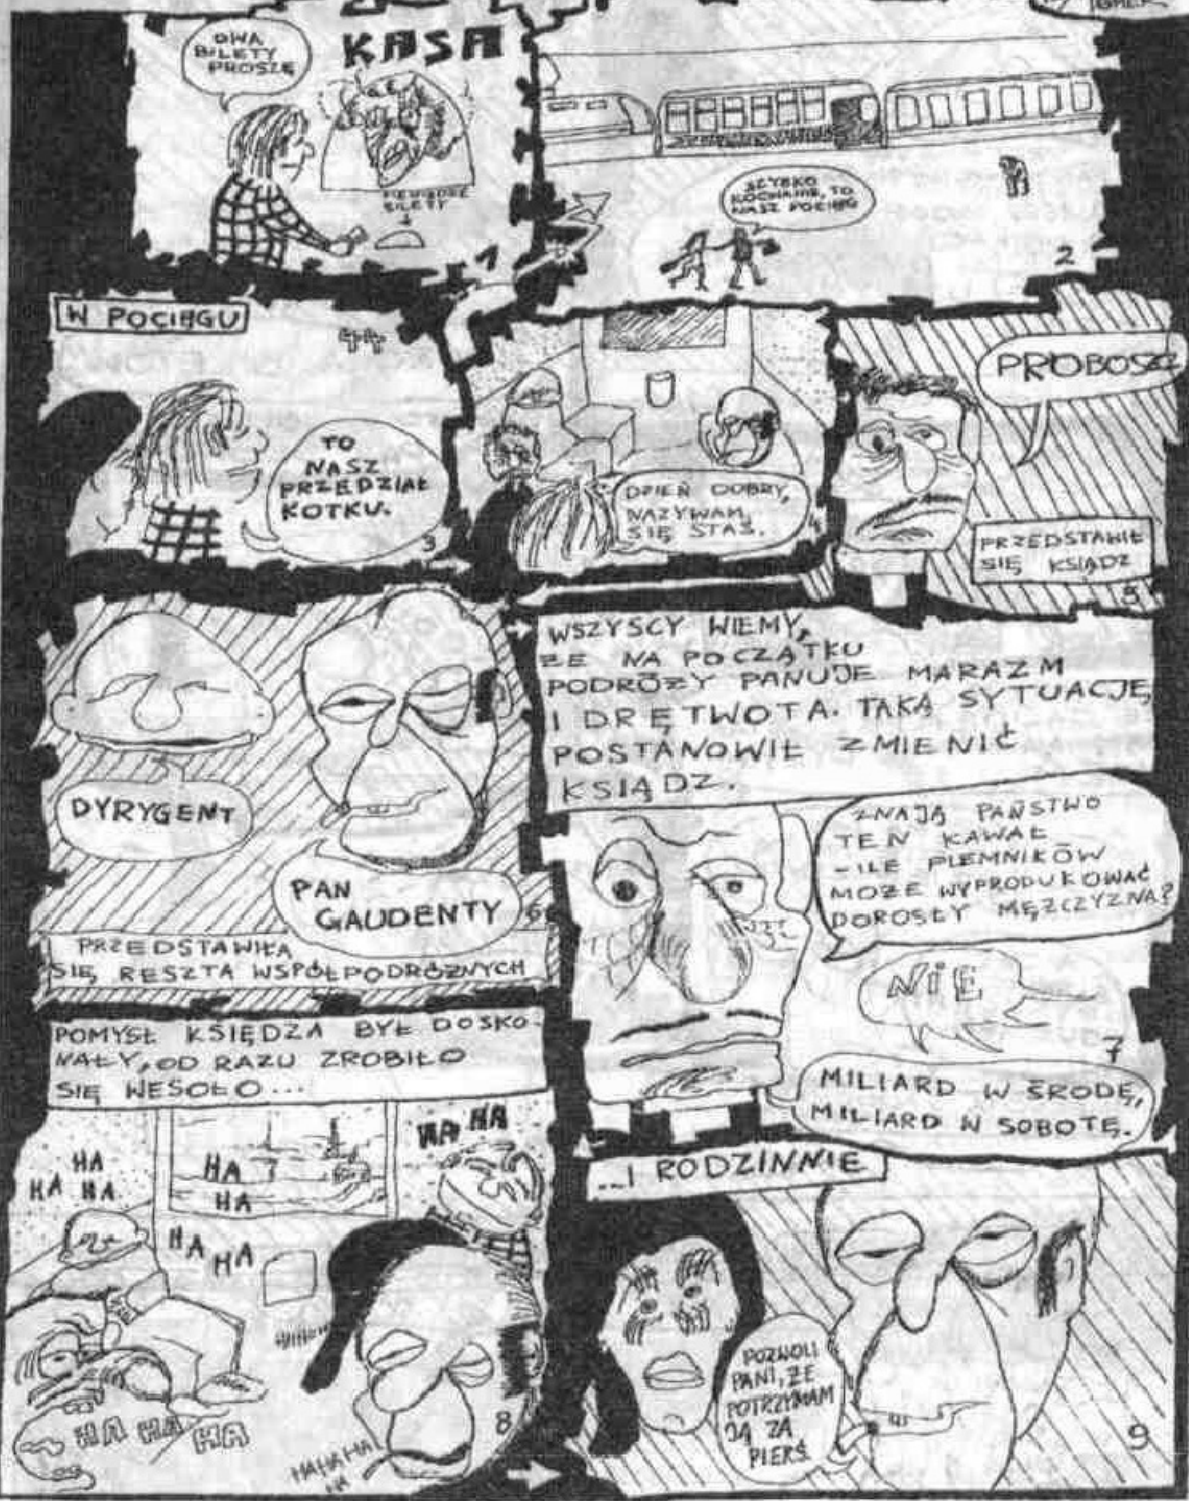 DWA
BILETY
PROSZĘ
KASA
PIENIĄDZE
BILETY
1
SZYBKO
KOCHANIE, TO
NASZ POCIĄG
2
W POCIĄGU
44
TO
NASZ
PRZEDZIAŁ
KOTKU.
3
DZIEŃ DOBRY,
NAZYWAM
SIĘ STAŚ.
4
PROBOSZCZ
PRZEDSTAWIŁ
SIĘ KSIĄDZ
5
DYRYGENT
PAN
GAUDENTY
6
PRZEDSTAWIŁA
SIĘ RESZTA WSPÓŁPODRÓŻNYCH
WSZYSCY WIEMY,
ŻE NA POCZĄTKU
PODRÓŻY PANUJE MARAZM
I DRĘTWOTA. TAKĄ SYTUACJĘ
POSTANOWIŁ ZMIENIĆ
KSIĄDZ.
ZNAJĄ PAŃSTWO
TEN KAWAŁ
-ILE PLEMNIKÓW
MOŻE WYPRODUKOWAĆ
DOROSŁY MĘŻCZYZNA?
NIE
7
MILIARD W ŚRODĘ,
MILIARD W SOBOTĘ.
POMYSŁ KSIĘDZA BYŁ DOSKO-
NAŁY, OD RAZU ZROBIŁO
SIĘ WESOŁO...
HA HA
HA
HA HA
HA
HA
HA
HA
HA HA HA
HAHAHA
HA
8
...I RODZINNIE
POZWOLI
PANI, ŻE
POTRZYMAM
JĄ ZA
PIERŚ
9